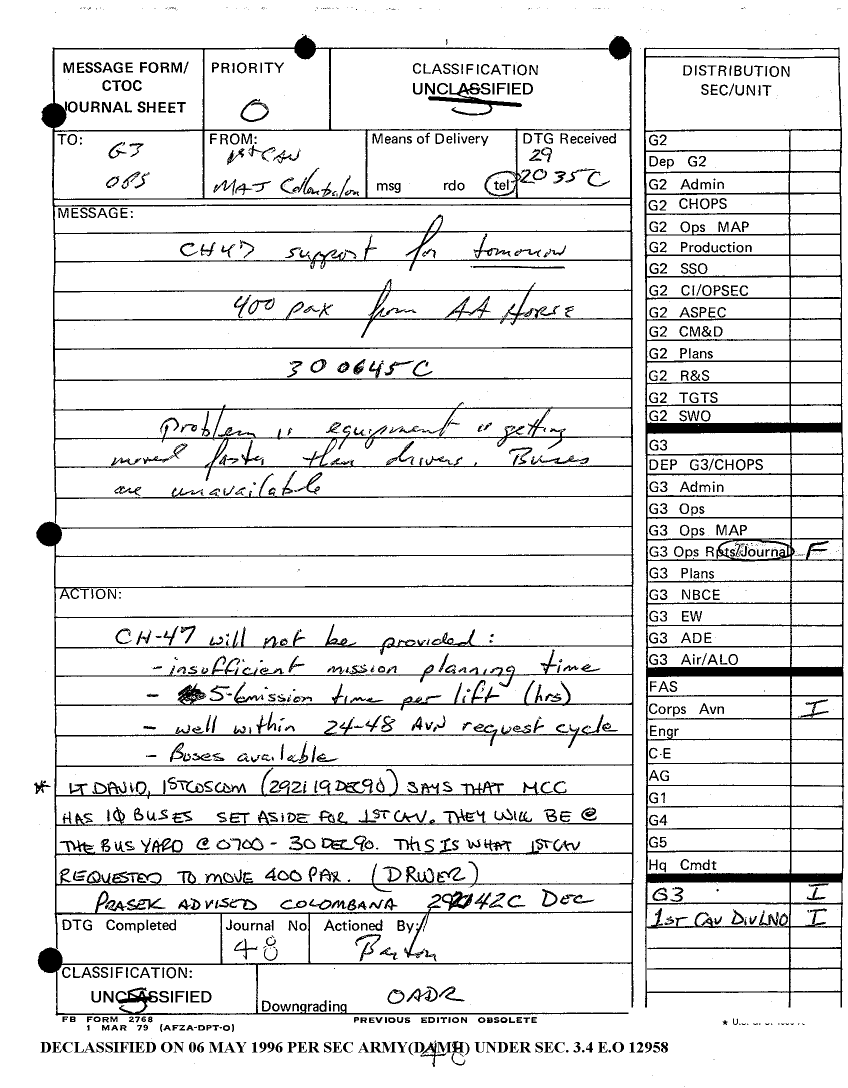 MESSAGE FORM/
CTOC
JOURNAL SHEET
PRIORITY
O
CLASSIFICATION
UNCLASSIFIED
S
TO:
G3
OPS
FROM:
1st CAV
MAJ
Means of Delivery
msg rdo tel
DTG Received
29
2035C
MESSAGE:
CH47 support for tomorrow
400 pax from AA HORSE
300645C
Problem is equipment is getting
moved faster than drivers. Buses
are unavailable
ACTION:
CH-47 will not be provided:
- insufficient mission planning time
- 5-6 mission time per lift (hrs)
- well within 24-48 AVN request cycle
- Buses available
* LT DAVID, 1STCOSCOM (292119DEC90) SAYS THAT MCC
HAS 10 BUSES SET ASIDE FOR 1ST CAV. THEY WILL BE @
THE BUS YARD @ 0700 - 30 DEC 90. THIS IS WHAT 1STCAV
REQUESTED TO MOVE 400 PAX. (DRWER)
PRASEK ADVISED COLOMBANA 292142C DEC
DTG Completed
Journal No
48
Actioned By:
Barton
CLASSIFICATION:
UNCLASSIFIED
S
Downgrading
OADR
FB FORM 2768
1 MAR 79 (AFZA-DPT-O)
PREVIOUS EDITION OBSOLETE
DISTRIBUTION
SEC/UNIT
G2
Dep G2
G2 Admin
G2 CHOPS
G2 Ops MAP
G2 Production
G2 SSO
G2 CI/OPSEC
G2 ASPEC
G2 CM&D
G2 Plans
G2 R&S
G2 TGTS
G2 SWO
G3
DEP G3/CHOPS
G3 Admin
G3 Ops
G3 Ops MAP
G3 Ops Rpts/Journal F
G3 Plans
G3 NBCE
G3 EW
G3 ADE
G3 Air/ALO
FAS
Corps Avn I
Engr
C-E
AG
G1
G4
G5
Hq Cmdt
G3 I
1ST CAV DIV LNO I
DECLASSIFIED ON 06 MAY 1996 PER SEC ARMY(DAMH) UNDER SEC. 3.4 E.O 12958
48